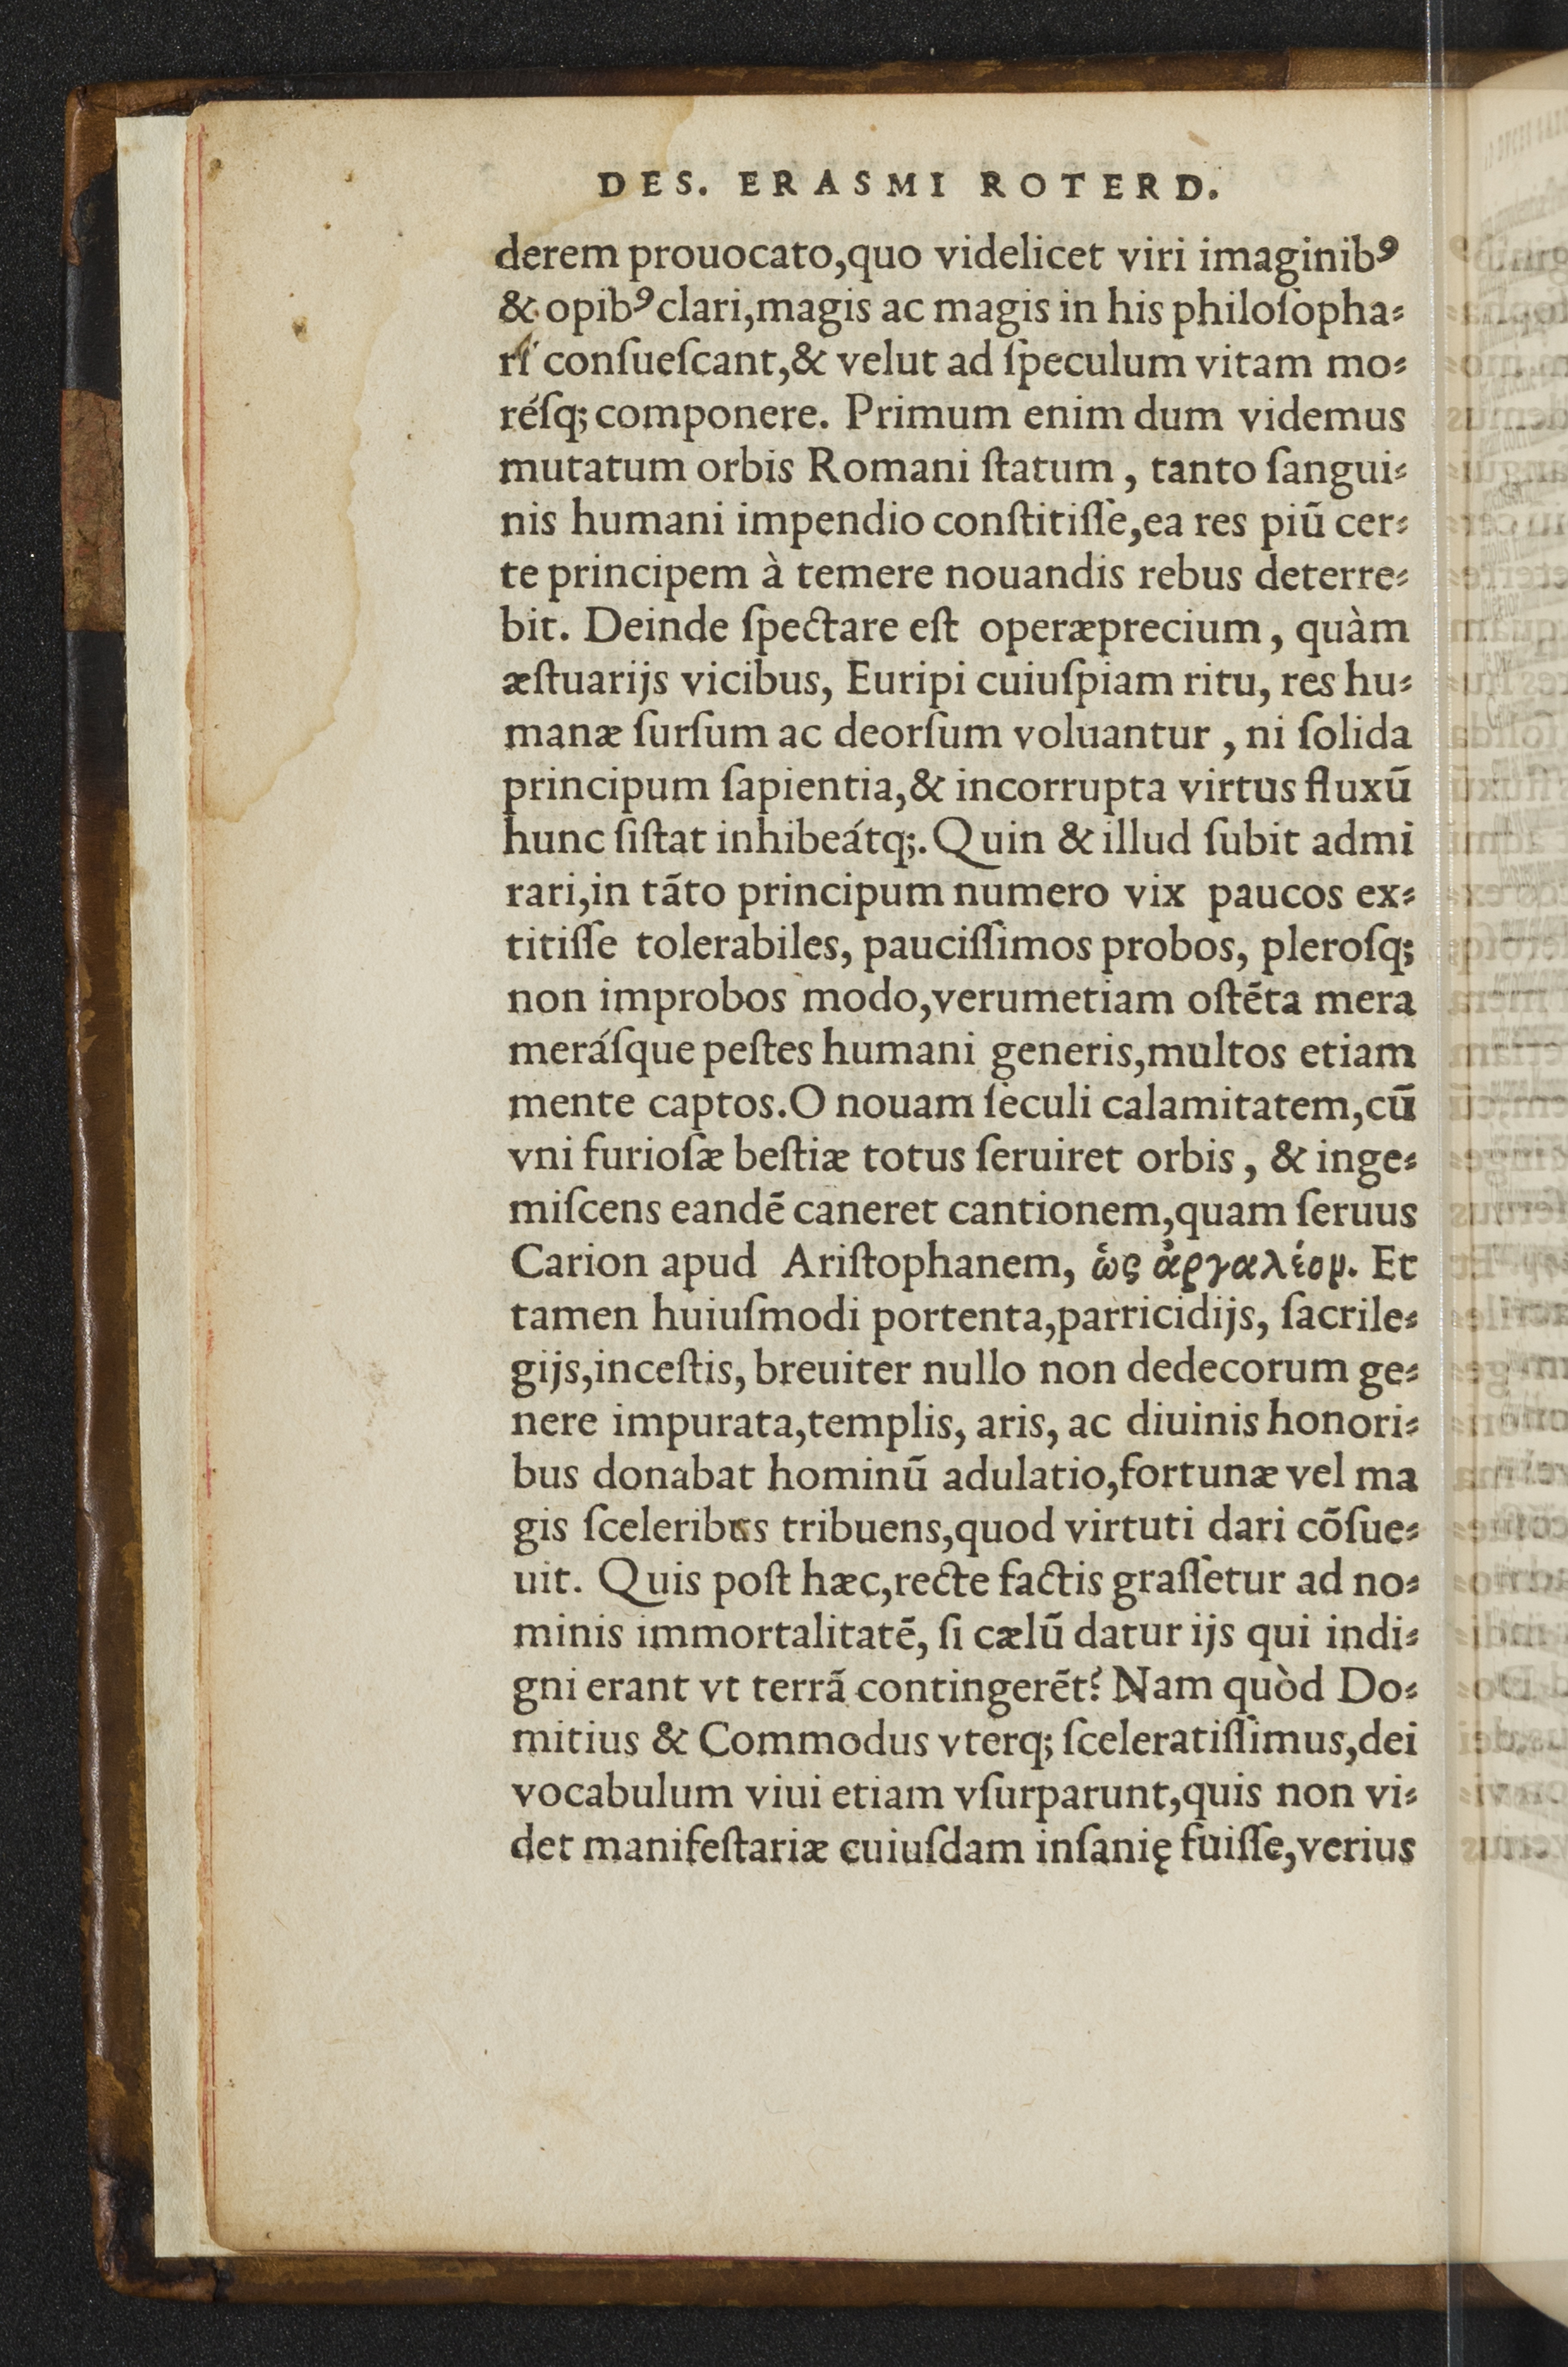 DES. ERASMI ROTERD.
derem prouocato,quo videlicet viri imaginibꝰ
& opibꝰ clari,magis ac magis in his philoſopha⸗
ri conſueſcant,& velut ad ſpeculum vitam mo⸗
réſq; componere. Primum enim dum videmus
mutatum orbis Romani ſtatum , tanto ſangui⸗
nis humani impendio conſtitiſſe,ea res piũ cer⸗
te principem à temere nouandis rebus deterre⸗
bit. Deinde ſpectare eſt operæprecium, quàm
æſtuarijs vicibus, Euripi cuiuſpiam ritu, res hu⸗
manæ ſurſum ac deorſum voluantur , ni ſolida
principum ſapientia,& incorrupta virtus fluxũ
hunc ſiſtat inhibeátq;. Quin & illud ſubit admi
rari,in tãto principum numero vix paucos ex⸗
titiſſe tolerabiles, pauciſſimos probos, pleroſq;
non improbos modo,verumetiam oſtẽta mera
meráſque peſtes humani generis,multos etiam
mente captos.O nouam ſeculi calamitatem,cũ
vni furioſæ beſtiæ totus ſeruiret orbis , & inge⸗
miſcens eandẽ caneret cantionem,quam ſeruus
Carion apud Ariſtophanem, ὡς ἀργαλέον. Et
tamen huiuſmodi portenta,parricidijs, ſacrile⸗
gijs,inceſtis, breuiter nullo non dedecorum ge⸗
nere impurata,templis, aris, ac diuinis honori⸗
bus donabat hominũ adulatio,fortunæ vel ma
gis ſceleribus tribuens,quod virtuti dari cõſue⸗
uit. Quis poſt hæc,recte factis graſſetur ad no⸗
minis immortalitatẽ, ſi cælũ datur ijs qui indi⸗
gni erant vt terrã contingerẽt? Nam quòd Do⸗
mitius & Commodus vterq; ſceleratiſſimus,dei
vocabulum viui etiam vſurparunt,quis non vi⸗
det manifeſtariæ cuiuſdam inſanię fuiſſe,verius